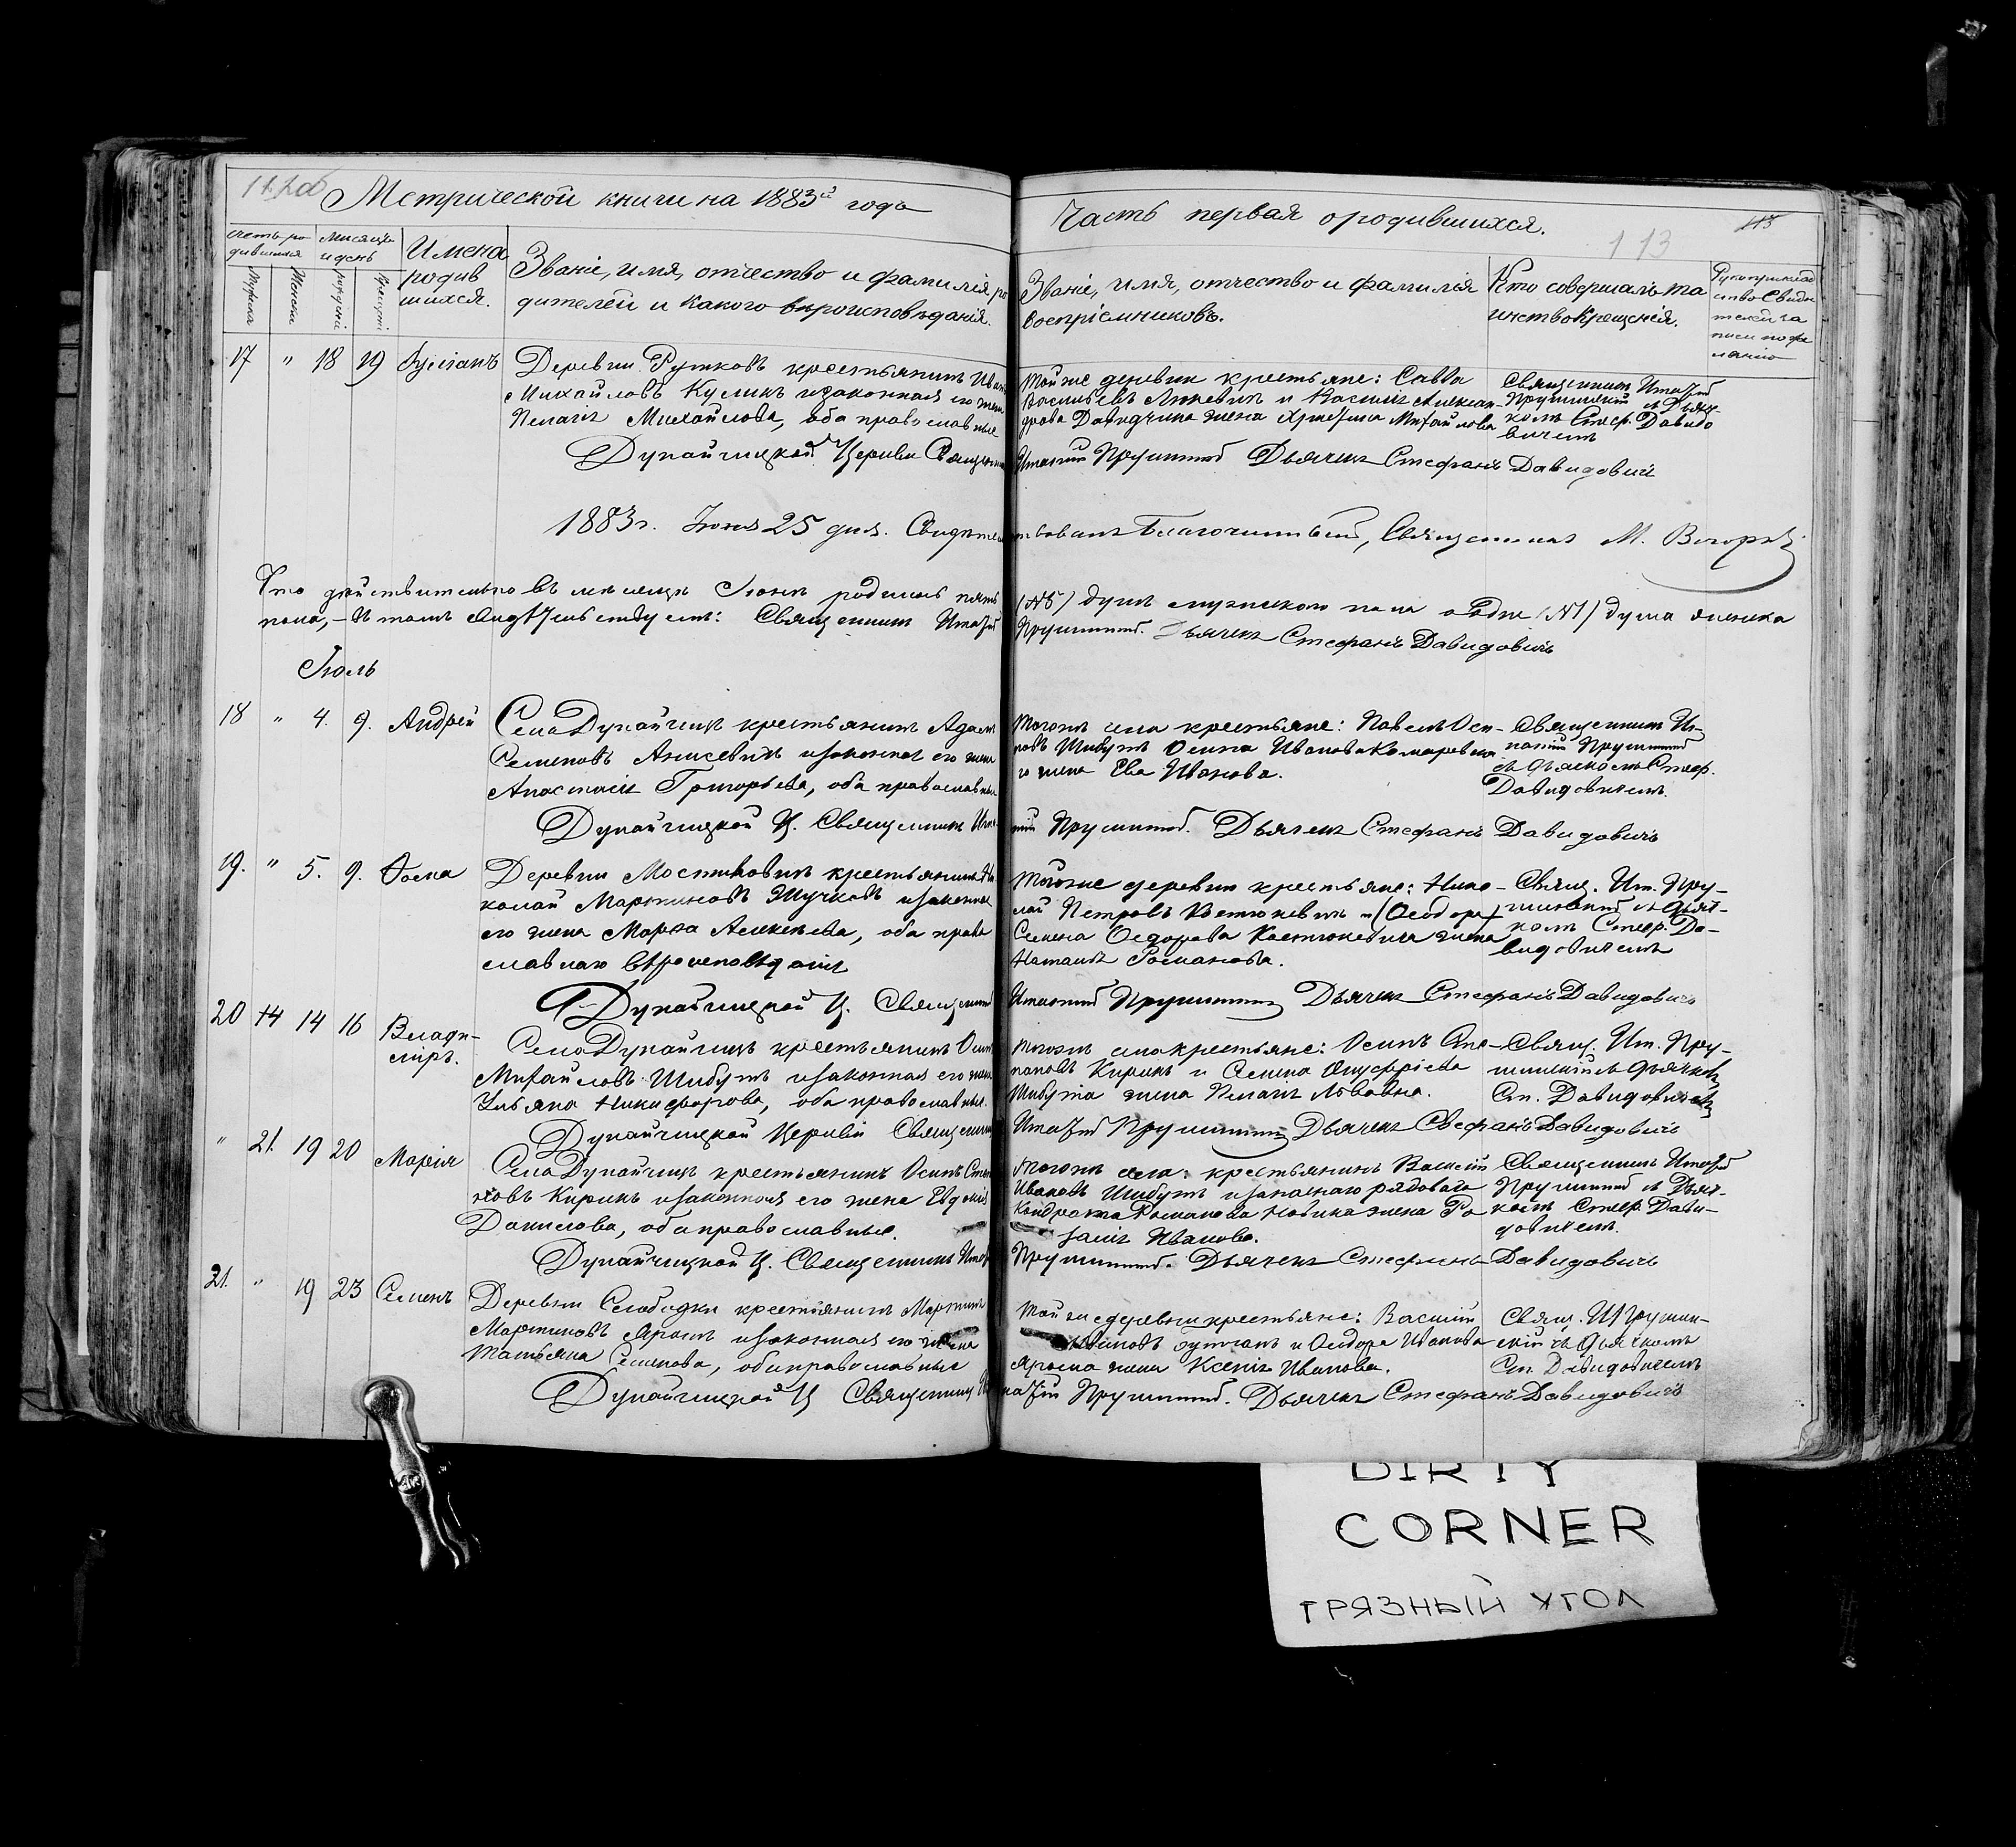 Метрической книги на 1883й годъ
Часть первая о родившихся.
113
счетъ ро
дившихся
Мужска
Женска
Мѣсяцъ
и день
рожденія
крещенія
Имена
родив
шихся.
Званіе, имя, отчество и фамилія ро
дителей и какого вѣроисповѣданія.
Званіе, имя, отчество и фамилія
воспріемниковъ.
Кто совершалъ та
инство крещенія.
Рукоприклад
ство свидѣ
телей за
писи по же
ланію
17 " 18 19
Деревни Рутковъ крестьянинъ Иванъ
Михайловъ Куликъ и законная его жена
Пелагія Михайлова, оба православные
Той же деревни крестьяне: Савва
Васильевъ и Василія Алексан-
дрова Давидчика жена Михайлова
Священникъ Игнатій
Прушинскій съ Дьяч-
комъ Стеф. Давидо
вичемъ
Дунайчицкой Церкви Священник Игнатій Прушинскій Дьячекъ Стефанъ Давидовичъ
1883г. Іюня 25 дня. Свидѣтельствовалъ Благочинный, Священникъ М.
Что дѣйствительно въ мѣсяцѣ Іюнѣ родилось пять (№5) душъ мужескаго пола и одна (№1) душа женска
пола, – въ томъ свидѣтельствуемъ: Священникъ Игнатій Прушинскій. Дьячекъ Стефанъ Давидовичъ
Іюль
18 " 4. 9. Андрей
Села Дунайчицъ крестьянинъ Адамъ
Семеновъ Анисевичъ и законная его жена
Анастасія Григорьева, оба православные
Тогожъ села крестьяне: Павелъ Оси-
повъ Шибутъ Осипа Иванова Комаровска
го жена Ева Иванова.
Священникъ Иг-
натій Прушинскій
съ дьячкомъ Стеф.
Давидовичемъ.
Дунайчицкой Ц. Священникъ Игнатій Прушинскій. Дьячекъ Стефанъ Давидовичъ
19. " 5. 9. Ѳома
Деревни Мостиловичъ крестьянинъ Ни
колай Мартиновъ Жучковъ и законная
его жена Марѳа Алексѣева, оба право
славнаго вѣроисповѣданія
Тойже деревни крестьяне: Нико-
лай Петровъ Костюкевичъ и (Ѳеодора)
Семена Ѳедорова Костюкевича жена
Наталія Романова.
Свящ. Иг. Пру-
шинскій съ Дьяч-
комъ Стеф. Да-
видовичемъ
Дунайчицкой Ц. Священникъ Игнатій Прушинскій Дьячекъ Стефанъ Давидовичъ
20 14 14 16 Влади-
міръ.
Села Дунайчицъ крестьянинъ Осипъ
Михайловъ Шибутъ и законная его жена
Ульяна Никифорова, оба православные.
Тогожъ села крестьяне: Осипъ Сте-
пановъ Кирикъ и Семена Онуфріева
Шибута жена Пелагія Львовна.
Свящ. Иг. Пру-
шинскій съ дьячкомъ
Ст. Давидовичемъ
Дунайчицкой Церкви Священникъ Игнатій Прушинскій Дьячекъ Стефанъ Давидовичъ
" 21. 19 20 Марія
Села Дунайчицъ крестьянинъ Осипъ Степа
новъ Кирикъ и законная его жена Евдокія
Данилова, оба православные.
Тогожъ села: крестьянинъ Василій
Ивановъ Шибутъ и запаснаго рядоваго
Кондрата Романова Новика жена Ро
залія Иванова.
Священникъ Игнатій
Прушинскій съ Дьяч-
комъ Стеф. Дави-
довичемъ.
Дунайчицкой Ц. Священникъ Игнатій Прушинскій. Дьячекъ Стефанъ Давидовичъ
21. " 19 23 Семенъ
Деревни Слободки крестьянинъ Мартинъ
Мартиновъ Ярошъ и законная его жена
Татьяна Семенова, оба православные
Той же деревни крестьяне: Василій
и Ѳедора Иванова
Яроша жена Ксенія Иванова.
Свящ. И. Прушин-
скій съ дьячкомъ
Ст. Давидовичемъ
Дунайчицкой Ц Священникъ Игнатій Прушинскій. Дьячекъ Стефанъ Давидовичъ
DIRTY
CORNER
ГРЯЗНЫЙ УГОЛ